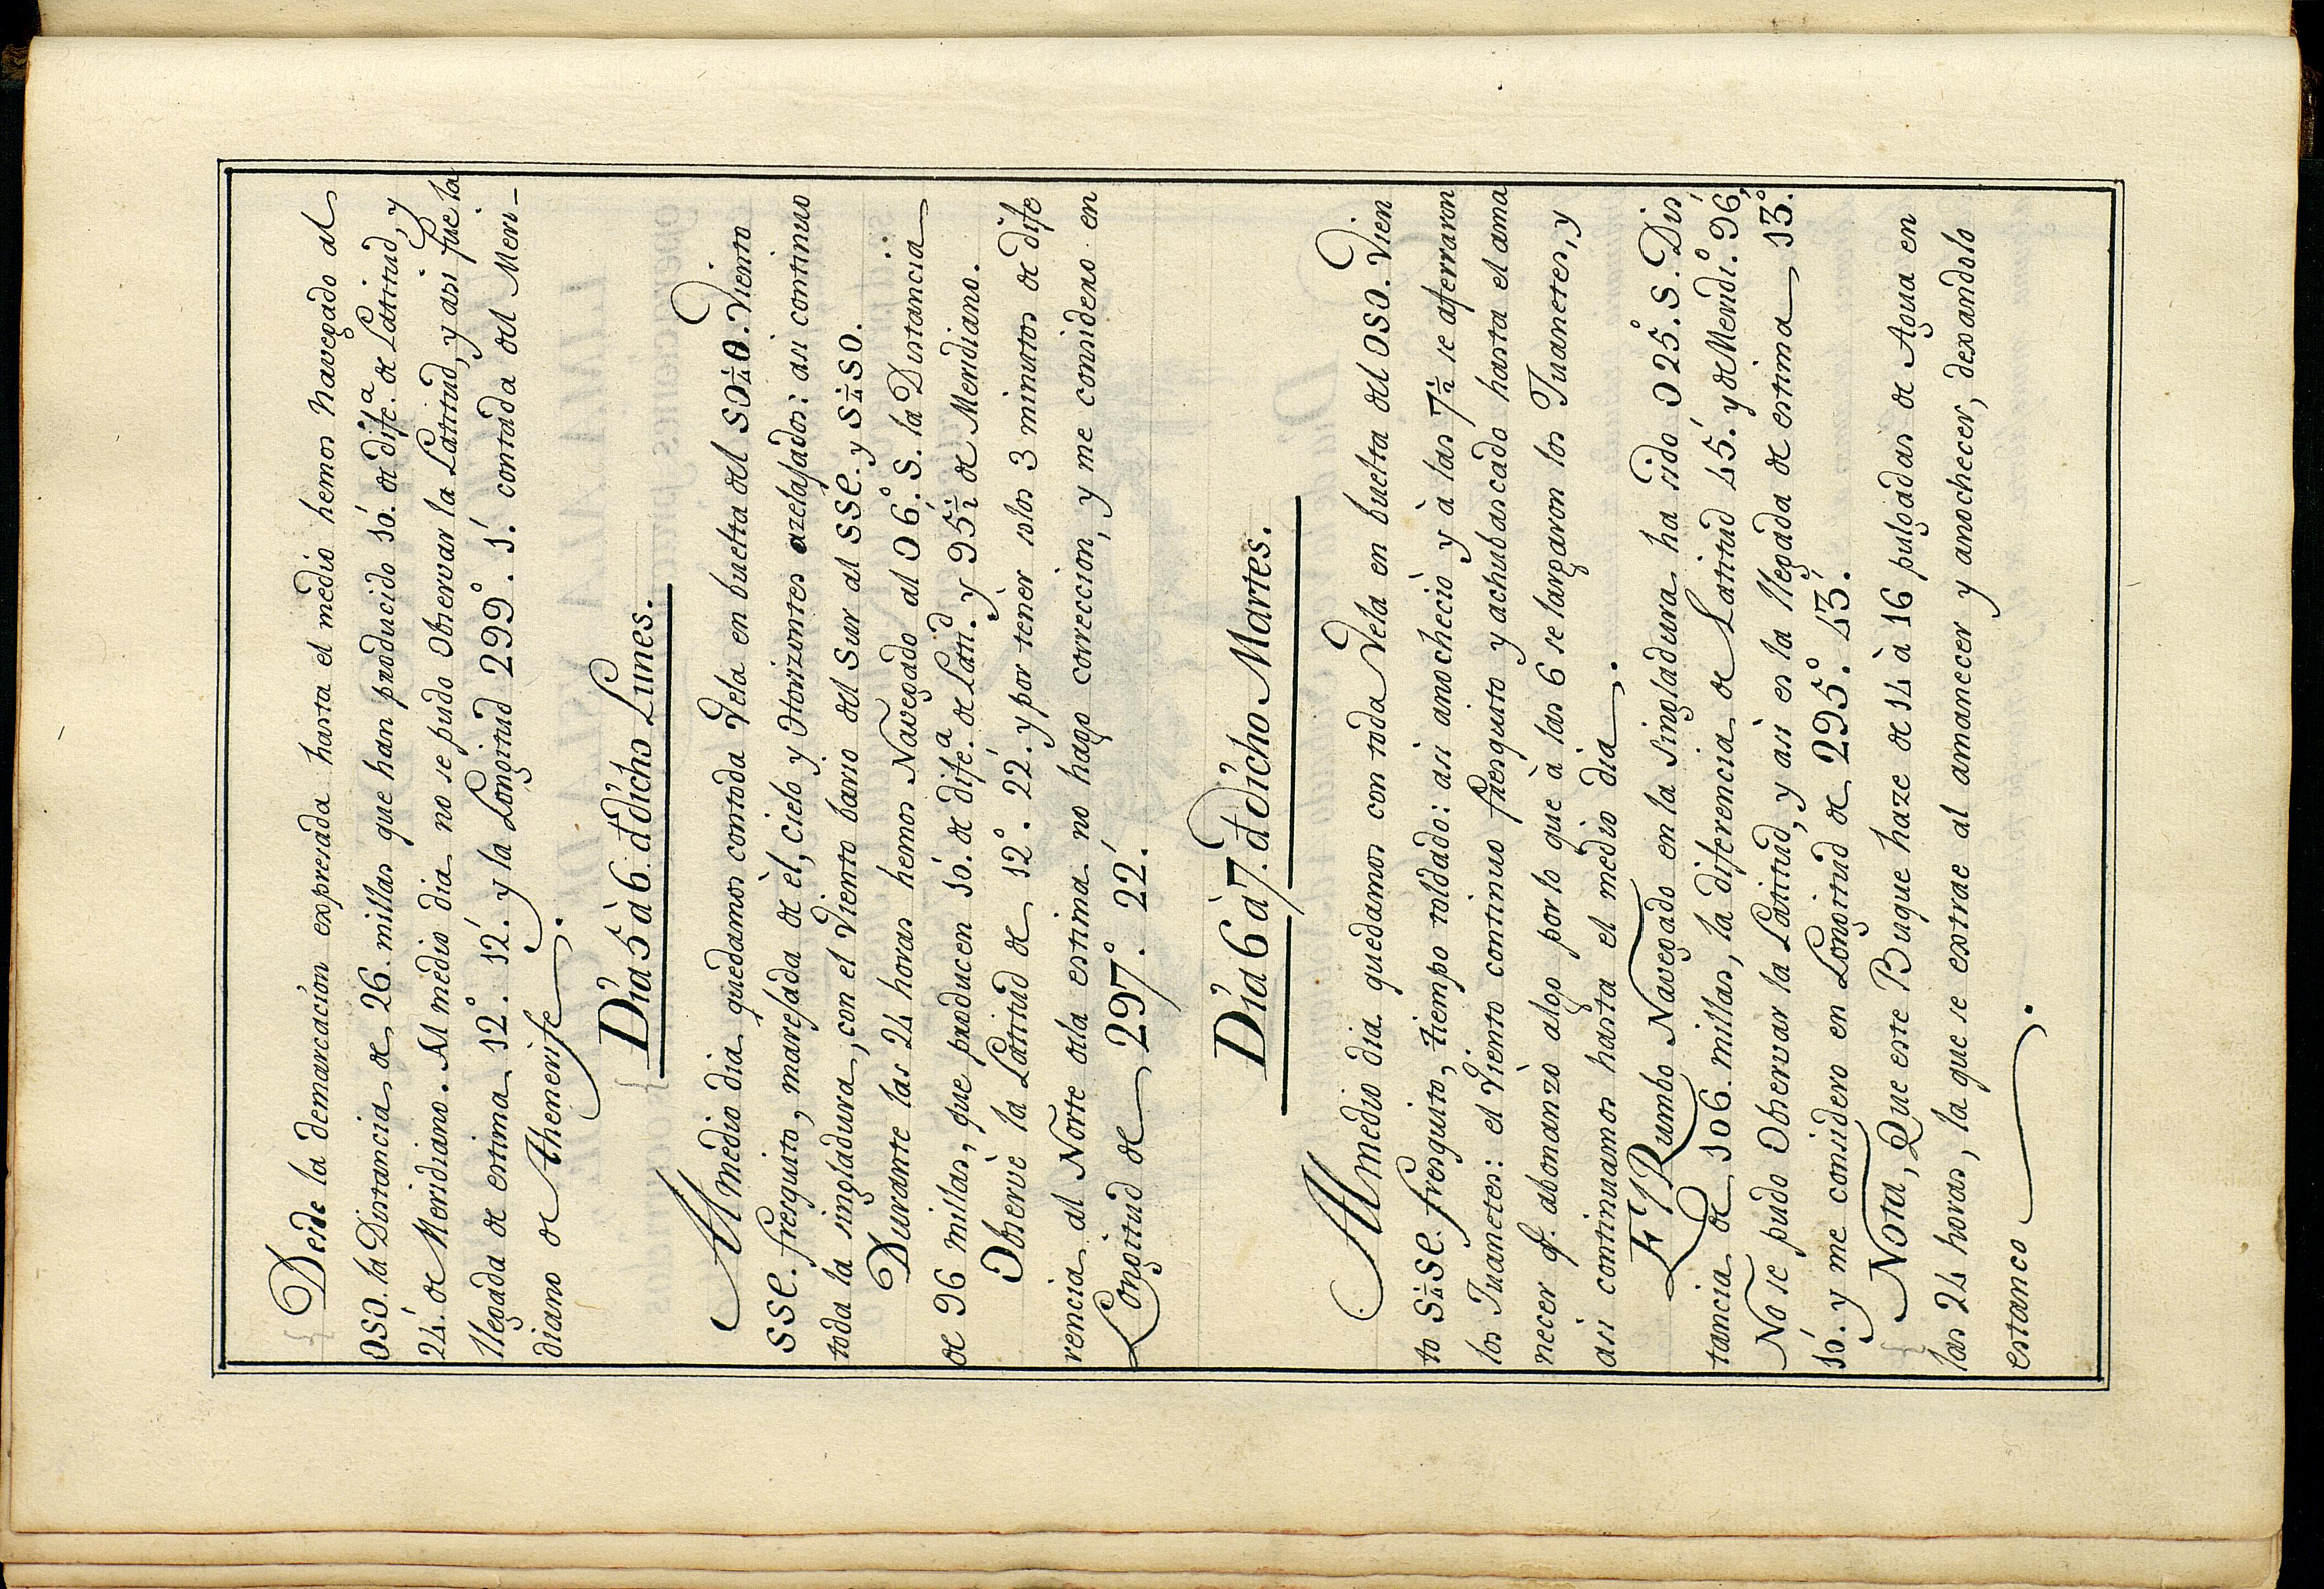 Desde la demarcacion expresada hasta el medio hemos Navegado al
OSO. la Distancia de 26. millas que han producido 10'. de dife.ª de Latitud, y
24'. de Meridiano. Al medio dia no se pudo Observar la Latitud, y asi fue la
llegada de estima 12°. 12'. y la Longitud 299°. 1'. contada del Meri-
diano de Thenerife.
Dia 5 à 6. d dicho Lunes.
Al medio dia quedamos contoda Vela en buelta del SO¼O. Viento
SSE. fresquito, marejada de èl, cielo y Horizontes azelajados: asi continuo
toda la singladura, con el Viento bario del Sur al SSE. y S¼SO.
Durante las 24 horas hemos Navegado al O 6°. S. la Distancia
de 96 millas, que producen 10'. de dife.ª de Latid. y 95½ de Meridiano.
Observè la Latitud de 12°. 22'. y por tener solos 3 minutos de dife
rencia al Norte dela estima no hago correccion, y me considero en
Longitud de 297°. 22'.
Dia 6 à 7. d dicho Martes.
Al medio dia quedamos con toda Vela en buelta del OSO. Vien
to S¼SE. fresquito, tiempo toldado: asi anocheciò y à las 7½ se aferraron
los Juanetes: el Viento continuo fresquito y achubascado hasta el ama
necer q. abonanzò algo por lo que à las 6 se largaron los Juanetes, y
asi continuamos hasta el medio dia.
El Rumbo Navegado en la singladura ha sido O 25°. S. Dis
tancia de 106. millas, la diferencia de Latitud 45'. y de Meridi.º 96',
No se pudo Observar la Latitud, y asi es la llegada de estima 13°.
10'. y me considero en Longitud de 295°. 43'.
Nota, Que este Buque haze de 14 à 16 pulgadas de Agua en
las 24 horas, la que se extrae al amanecer y anochecer, dexandolo
estanco.